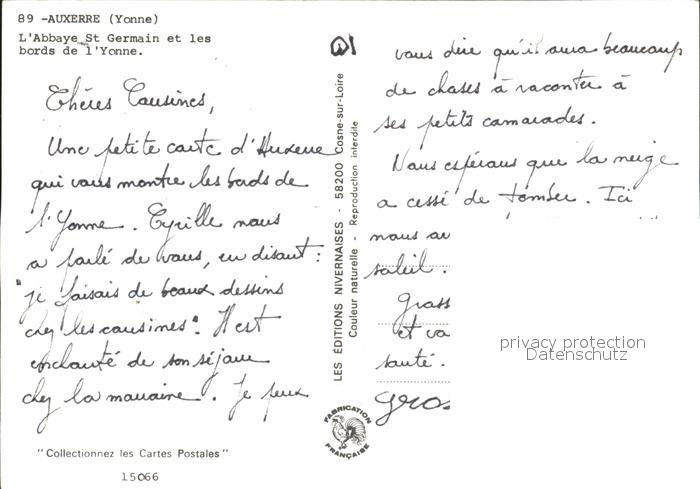 89 -AUXERRE (Yonne)
L'Abbaye St Germain et les
bords de l'Yonne.
Chères Cousines,
Une petite carte d'Auxerre
qui vous montre les bords de
l'Yonne. Cyrille nous
a parlé de vous, en disant :
"je faisais de beaux dessins
chez les cousines". Il est
enchanté de son séjour
chez la marraine. Je peux
"Collectionnez les Cartes Postales"
15066
LES ÉDITIONS NIVERNAISES - 58200 Cosne-sur-Loire
Couleur naturelle - Reproduction interdite
FABRICATION FRANÇAISE
vous dire qu'il aura beaucoup
de choses à raconter à
ses petits camarades.
Nous espérons que la neige
a cessé de tomber. Ici
nous av
soleil.
Gross
et vo
santé.
Gros
privacy protection
Datenschutz